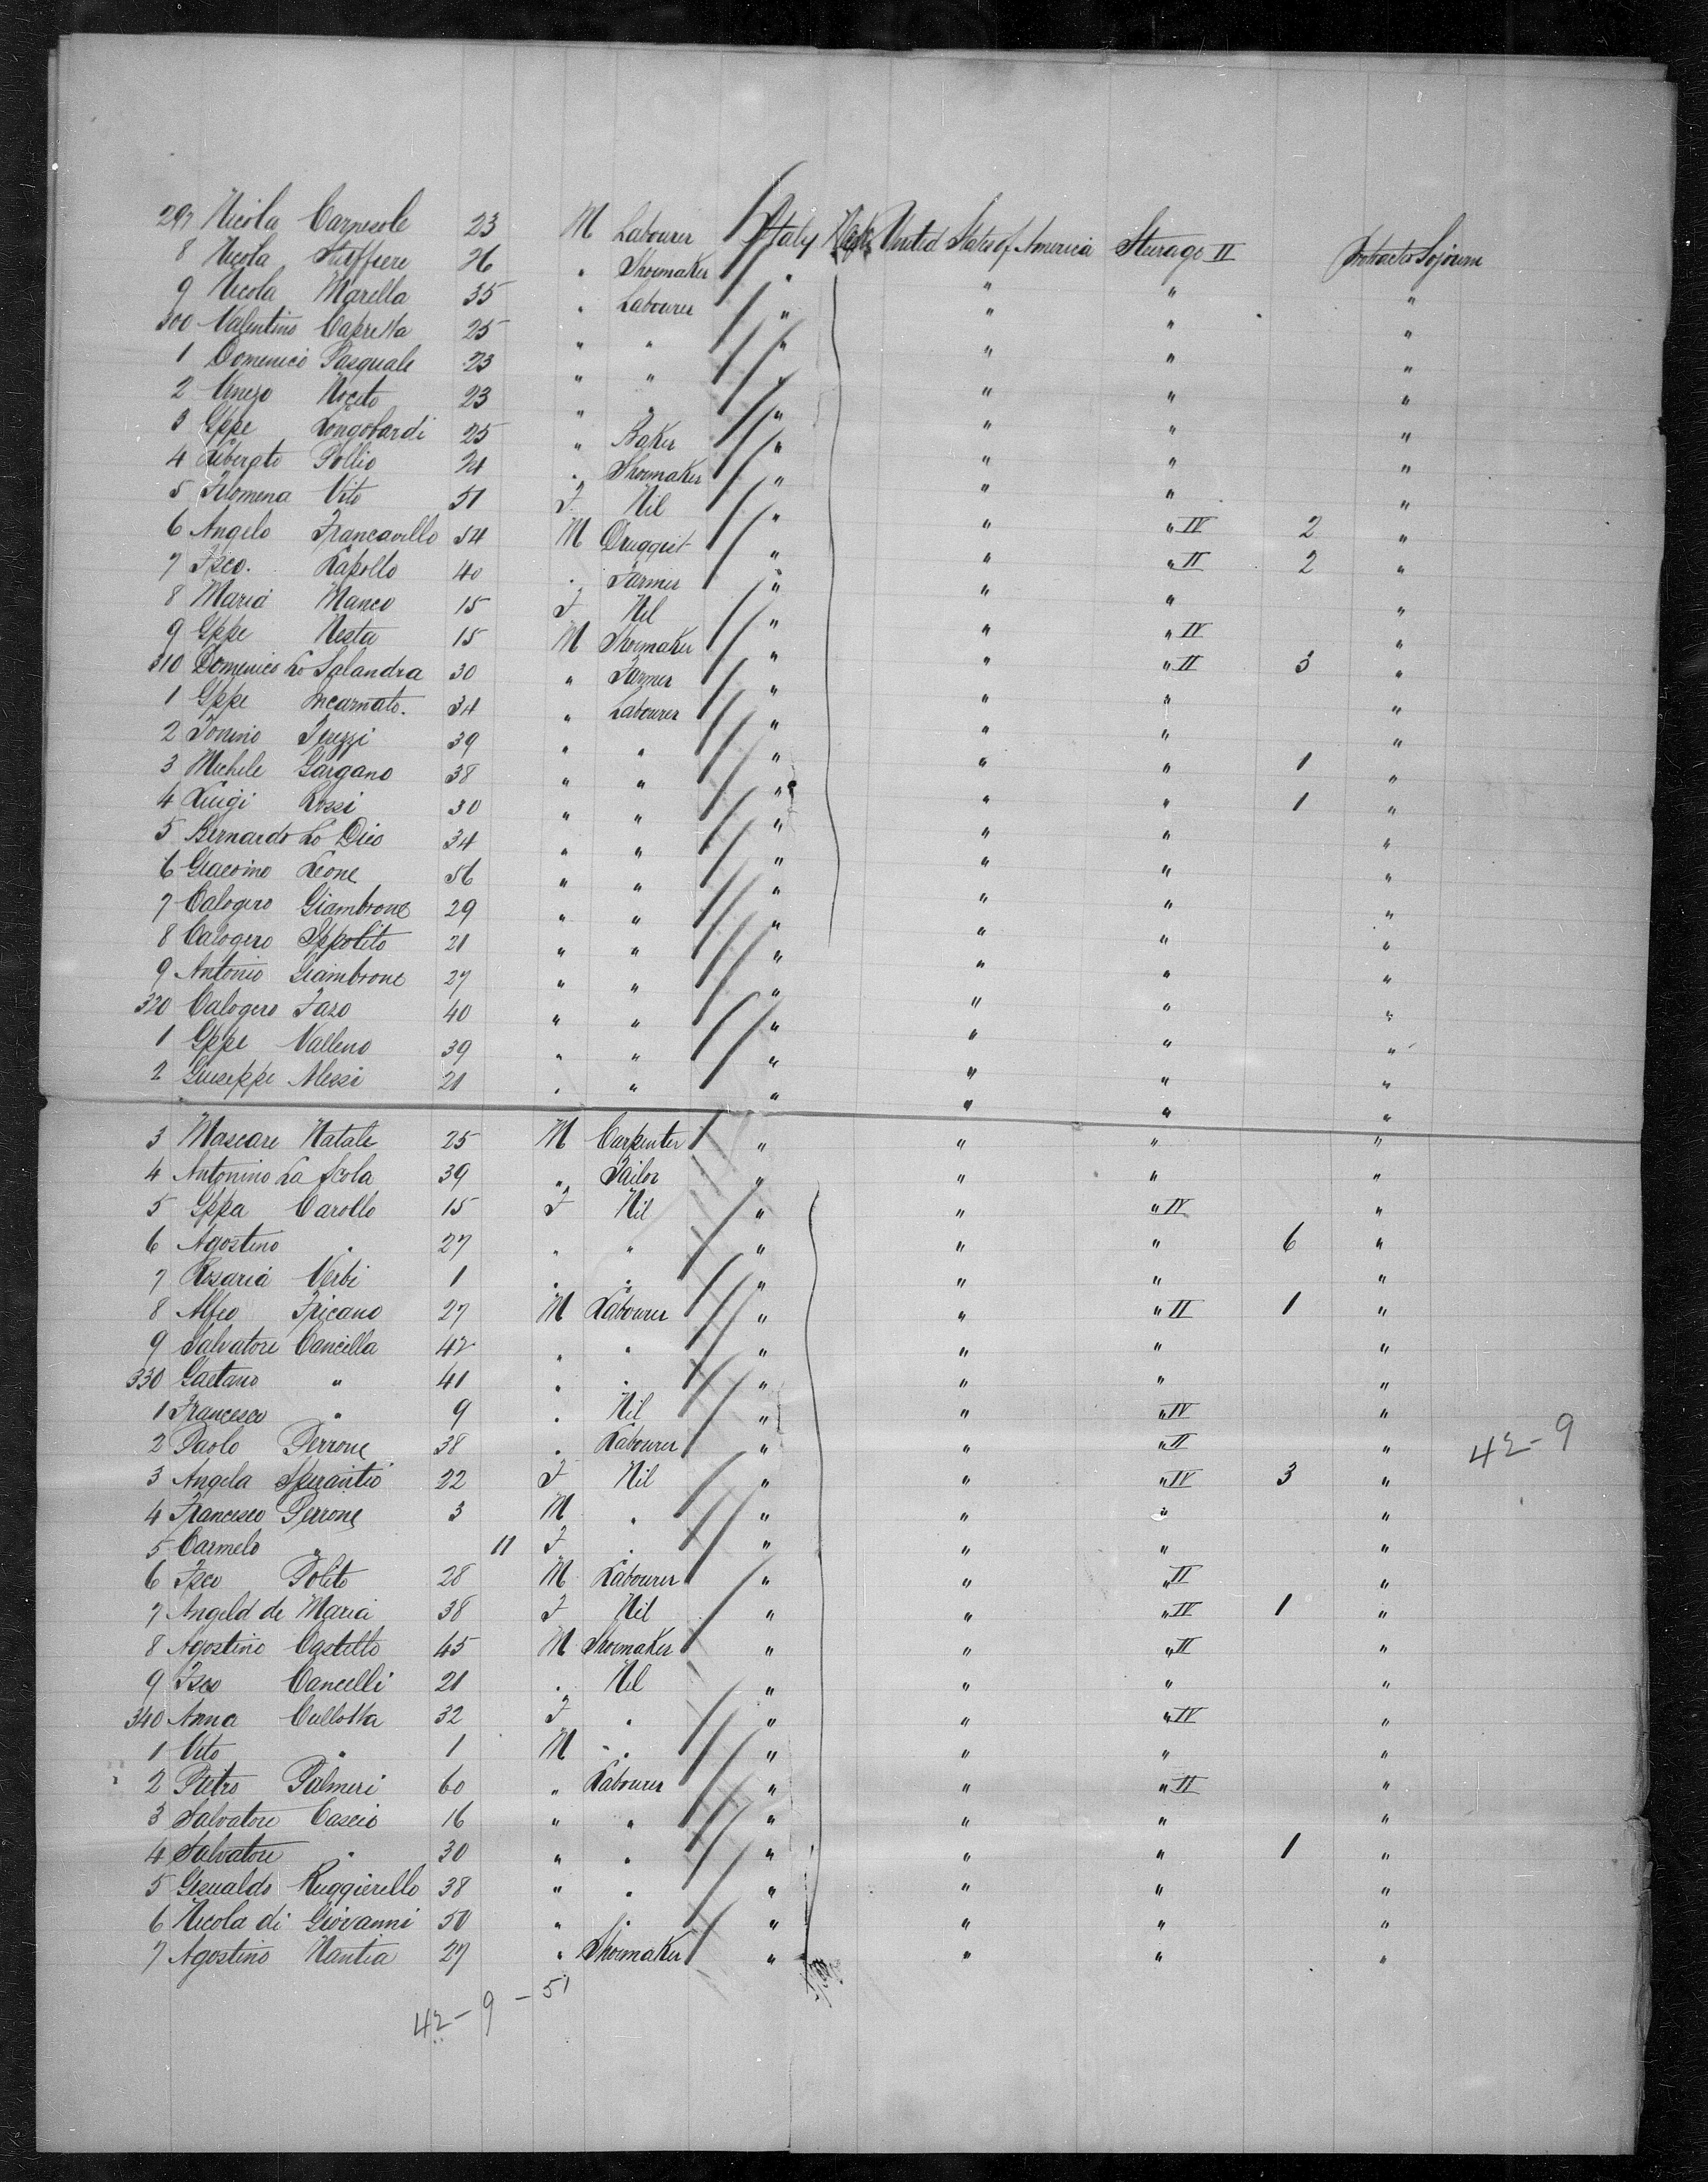 297 Nicola Carnesole 23 M Labourer Italy United States of America Sturage II Protracted Sojourn
8 Nicola Stuffiere 26 " Shoemaker " " " "
9 Nicola Marella 35 " Labourer " " " "
300 Valentino Capretta 25 " " " " " "
1 Domenico Pasquale 23 " " " " " "
2 Nocito 23 " " " " " "
3 Gppe Longobardi 25 " Baker " " " "
4 Liberato Pollio 21 " Shoemaker " " " "
5 Filomena Vito 51 F Nil " " " IV 2 "
6 Angelo Francavillo 54 M Druggist " " " II 2 "
7 Fsco. Lapollo 40 " Farmer " " " "
8 Maria Manco 15 F Nil " " " IV "
9 Gppe Nesta 15 M Shoemaker " " " II 3 "
310 Domenico Lo Salandra 30 " Farmer " " " "
1 Gppe Incarnato. 34 " Labourer " " " "
2 Tonino 39 " " " " " 1 "
3 Michele Gargano 38 " " " " " 1 "
4 Luigi Rossi 30 " " " " " "
5 Bernardo Lo Dico 34 " " " " " "
6 Giacomo Leone 56 " " " " " "
7 Calogero Giambrone 29 " " " " " "
8 Calogero Ippolito 21 " " " " " "
9 Antonio Giambrone 27 " " " " " "
320 Calogero Faso 40 " " " " " "
1 Gppe Valleno 39 " " " " " "
2 Giuseppe Alessi 21 " " " " " "
3 Mascare Natale 25 M Carpenter " " " "
4 Antonino La Scola 39 " Tailor " " " "
5 Gppa Carollo 15 F Nil " " " IV "
6 Agostino " 27 " " " " " 6 "
7 Rosaria Verbi 1 " " " " " "
8 Alfeo Fricano 27 M Labourer " " " II 1 "
9 Salvatore Cancilla 42 " " " " " "
330 Gaetano " 41 " " " " " "
1 Francesco " 9 " Nil " " " IV "
2 Paolo Perrone 38 " Labourer " " " II " 42-9
3 Angela Sperantio 22 F Nil " " " IV 3 "
4 Francesco Perrone 3 M " " " " "
5 Carmelo " 11 F " " " " "
6 Fsco Polito 28 M Labourer " " " II "
7 Angela de Maria 38 F Nil " " " IV 1 "
8 Agostino Castello 45 M Shoemaker " " " II "
9 Fsco Cancelli 21 " Nil " " " "
340 Anna Cullotta 32 F " " " " IV "
1 Vito " 1 M " " " " "
2 Pietro Palmeri 60 " Labourer " " " II "
3 Salvatore Cascio 16 " " " " " "
4 Salvatore " 30 " " " " " 1 "
5 Gesualdo Ruggierello 38 " " " " " "
6 Nicola di Giovanni 50 " " " " " "
7 Agostino Nantia 27 " Shoemaker " " " "
42-9-51